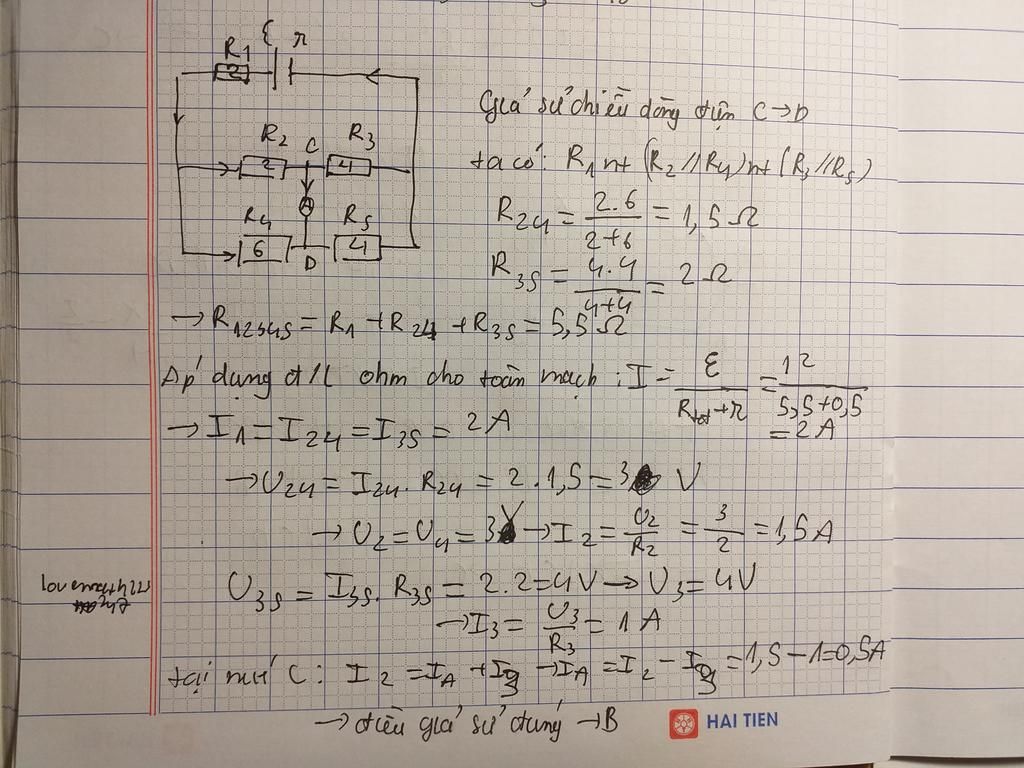 R1
ε r
2
R2 C R3
2 4
A
R4 R5
6 D 4
Giả sử chiều dòng điện C→D
ta có: R1 nt (R2 // R4) nt (R3 // R5)
R24 = 2.6 / 2+6 = 1,5 Ω
R35 = 4.4 / 4+4 = 2 Ω
→ R12345 = R1 + R24 + R35 = 5,5 Ω
Áp dụng đ/l ohm cho toàn mạch: I = ε / Rtđ+r = 12 / 5,5+0,5
= 2 A
→ I1 = I24 = I35 = 2 A
→ U24 = I24. R24 = 2 . 1,5 = 3 V
→ U2 = U4 = 3V → I2 = U2 / R2 = 3 / 2 = 1,5 A
U35 = I35. R35 = 2. 2 = 4V → U3 = 4V
→ I3 = U3 / R3 = 1 A
tại nút C: I2 = IA + I3 → IA = I2 - I3 = 1,5 - 1 = 0,5A
→ điều giả sử đúng → B
HAI TIEN
HAI TIEN